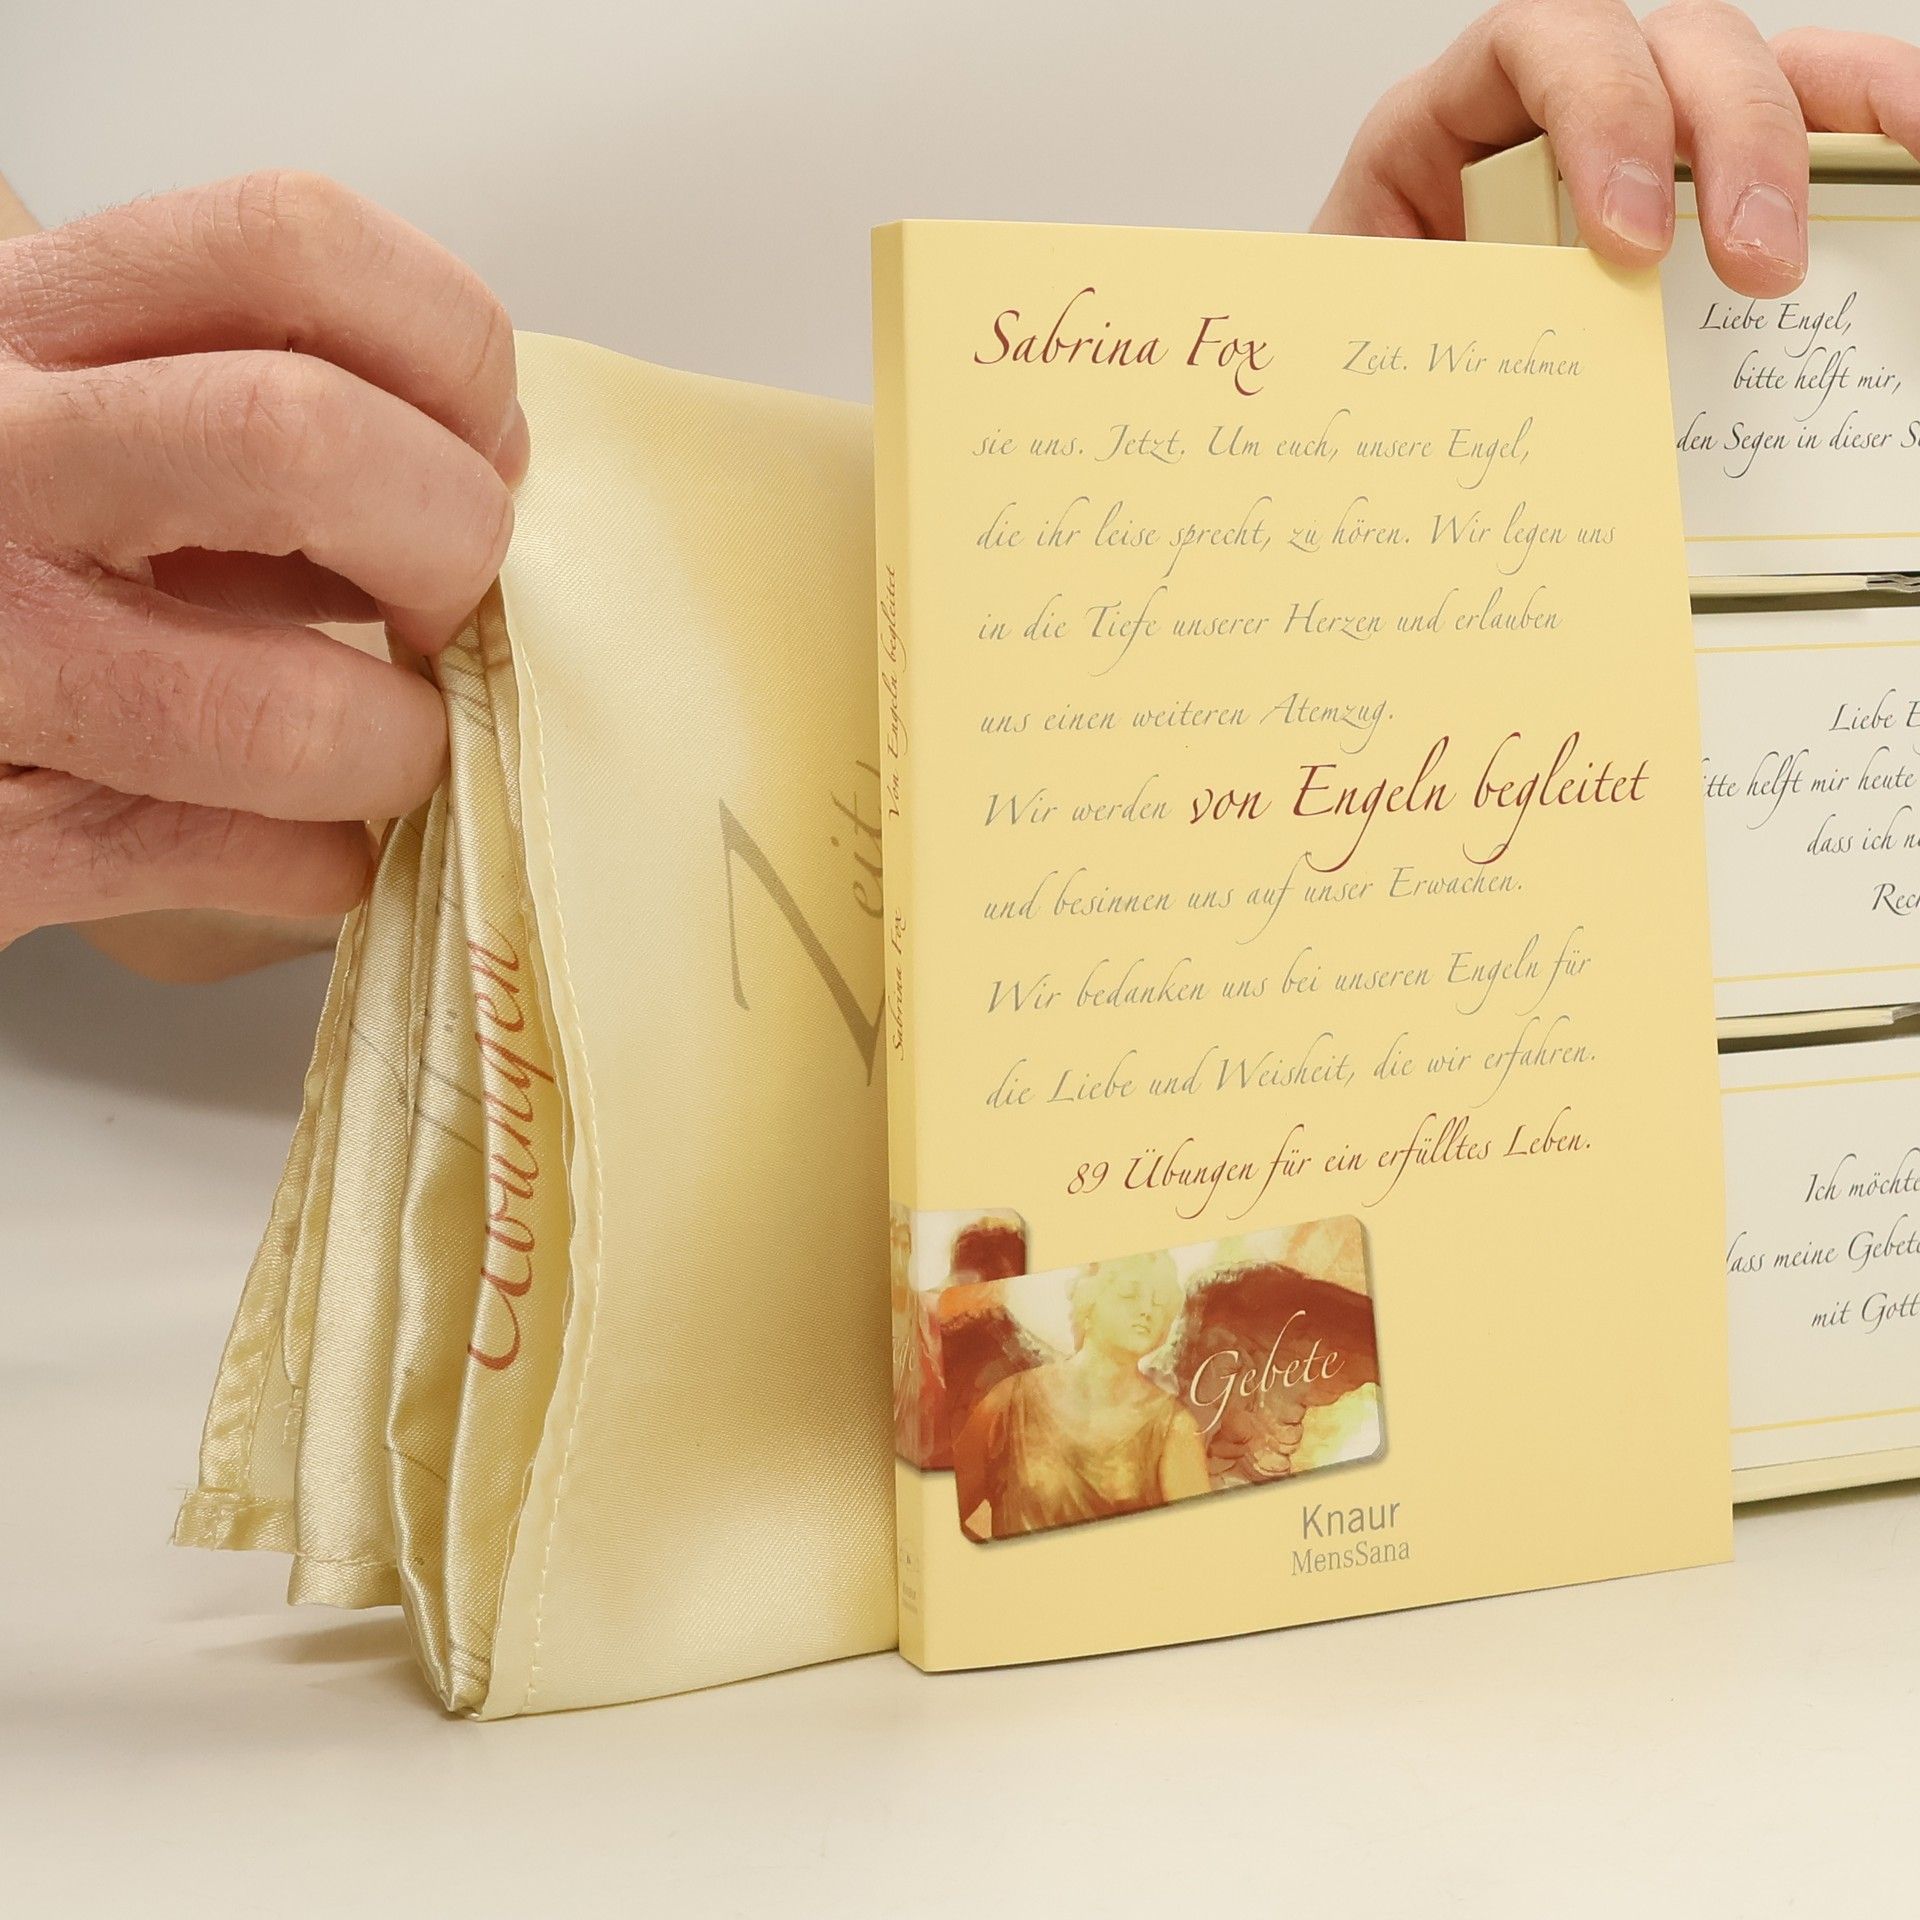 Sabrina Fox Zeit. Wir nehmen
sie uns. Jetzt. Um euch, unsere Engel,
die ihr leise sprecht, zu hören. Wir legen uns
in die Tiefe unserer Herzen und erlauben
uns einen weiteren Atemzug.
Wir werden von Engeln begleitet
und besinnen uns auf unser Erwachen.
Wir bedanken uns bei unseren Engeln für
die Liebe und Weisheit, die wir erfahren.
89 Übungen für ein erfülltes Leben.
Gebete
Knaur
MensSana
Sabrina Fox Von Engeln begleitet
Zeit
Liebe Engel,
bitte helft mir,
den Segen in dieser
Liebe
helft mir heute
dass ich
Ich möchte
meine Gebete
mit Gott